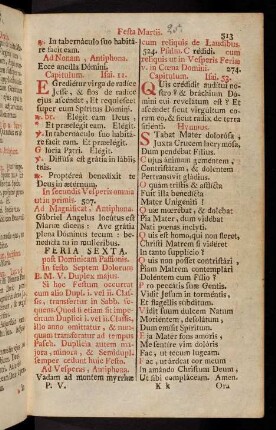 Festa Martii.
313
℟. In tabernáculo suo habitá-
re facit eam.
Ad Nonam, Antiphona.
Ecce ancilla Dómini.
Capitulum. Isai. 11.
Egrediétur virga de radíce
Jesse, & flos de radíce
ejus ascéndet, & requiéscet
super eum Spíritus Dómini.
℟. br. Elégit eam Deus,
* Et præelégit eam. Elégit.
℣. In tabernáculo suo habitá-
re facit eam. Et præelégit.
Glória Patri. Elégit.
℣. Diffúsa est grátia in lábiis
tuis.
℟. Proptérea benedíxit te
Deus in ætérnum.
In secundis Vesperis omnia
ut in primis. 507.
Ad Magnificat, Antiphona.
Gábriel Angelus locútus est
Maríæ dicens: Ave grátia
plena Dóminus tecum: be-
nedícta tu in muliéribus.
FERIA SEXTA
post Dominicam Passionis
In festo Septem Dolorum
B. M. V. Duplex majus.
Si hoc Festum occurrat
cum alio Dupl. 1. vel 2. Class.
transfertur in Sabb. se-
quens. Quod si etiam sit impe-
ditum Duplici 1. vel 2. Class.
illo anno omittatur, & nun-
quam transfertur tempore
Pasch. Duplicia autem ma-
jora, minora, & Semidupl.
semper cedunt huic Festo.
Ad Vesperas, Antiphona.
Vadam ad montem myrrhæ
P. V.
cum reliquis de Laudibus
524. Psalm. Crédidi. cum
reliquis ut in Vesperis Feriæ
v. in Cœna Domini. 274.
Capitulum. Isai. 53.
Quis crédidit audítui no-
stro? & bráchium Dó-
mini cui revelátum est? Et
ascéndet sicut virgúltum co-
ram eo, & sicut radix de terra
sitiénti. Hymnus.
Stabat Mater dolorósa,
Juxta Crucem lacrymósa,
Dum pendébat Fílius.
Cujus ánimam geméntem,
Contristátam, & doléntem
Pertransívit gládius.
O quam tristis & afflícta
Fuit illa benedícta
Mater Unigéniti!
Quæ mærébat, & dolébat
Pia Mater, dum vidébat
Nati pœnas ínclyti.
Quis est homo, qui non fleret,
Christi Matrem si vidéret
In tanto supplício?
Quis non posset contristári,
Piam Matrem contemplári
Doléntem cum Fílio?
Pro peccátis suæ Gentis
Vidit Jesum in torméntis,
Et flagéllis súbditum.
Vidit suum dulcem Natum
Moriéntem, desolátum,
Dum emísit Spíritum.
Eja Mater fons amóris,
Me sentíre vim dolóris
Fac, ut tecum lúgeam.
Fac, ut árdeat cor meum
In amándo Christum Deum,
Ut sibi compláceam. Amen.
K k
Ora